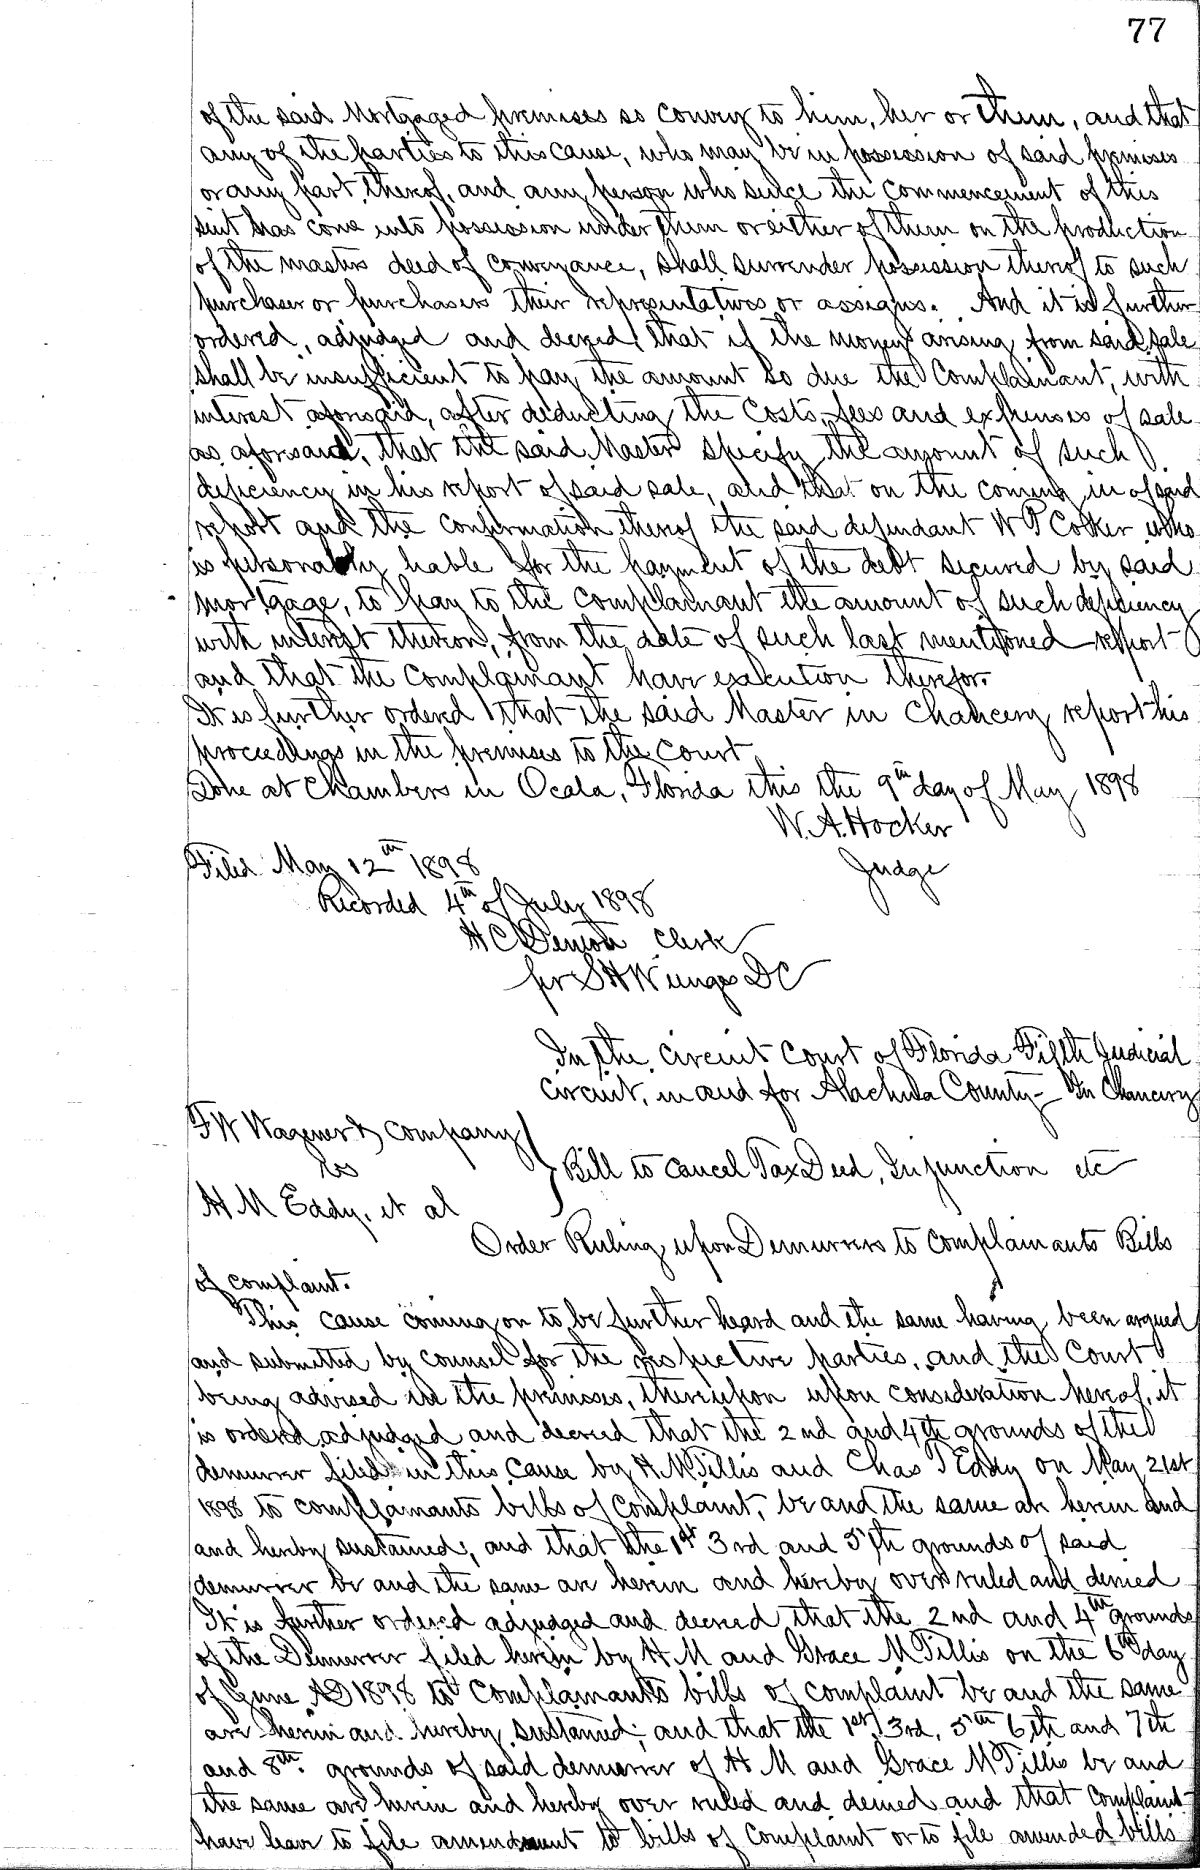 77
of the said Mortgaged premises so convey to him, her or them, and that
any of the parties to this cause, who may be in possession of said premises
or any part thereof, and any person who since the commencement of this
suit has come into possession under them or either of them on the production
of the masters deed of conveyance, shall surrender possession thereof to such
purchaser or purchasers their representatives or assigns. And it is further
ordered, adjudged and decreed, that if the money arising from said sale
shall be insufficient to pay the amount so due the Complainant, with
interest aforsaid, after deducting the costs, fees and expenses of sale
as aforsaid, that the said Master specify the amount of such
deficiency in his report of said sale, and that on the coming in of said
report and the confirmation thereof the said defendant W P Coker who
is personably liable for the payment of the debt secured by said
mortgage, to pay to the complainant the amount of such deficiency
with interest thereon, from the date of such last mentioned report
and that the complainant have execution therefor.
It is further ordered that the said Master in Chancery report his
proceedings in the premises to the Court
Done at Chambers in Ocala, Florida this the 9th day of May 1898
W. A. Hocker
Judge
Filed May 12th 1898
Recorded 4th of July 1898
H C Denton Clerk
per S H Wienges DC
In the circuit Court of Florida Fifth Judicial
Circuit, in and for Alachua County - In Chancery
F W Wagener & Company
vs
H M Eddy, et al
Bill to cancel Tax Deed, Injunction etc
Order Ruling upon Demurrers to complainants Bills
of complaint.
This cause coming on to be further heard and the same having been argued
and submitted by counsel for the respective parties, and the Court
being advised in the premises, thereupon upon consideration hereof, it
is ordered adjudged and decreed that the 2nd and 4th grounds of the
demurrer filed in this cause by H M Tillis and Chas T Eddy on May 21st
1898 to complainants bills of complaint, be and the same are herein and
and hereby sustained, and that the 1st 3rd and 5th grounds of said
demurrer be and the same are herein and hereby over ruled and denied
It is further ordered adjudged and decreed that the 2nd and 4th grounds
of the Demurrer filed herein by H M and Grace M Tillis on the 6th day
of June AD 1898 to Complainants bills of complaint be and the same
are herein and hereby sustained; and that the 1st, 3rd, 5th 6th and 7th
and 8th. grounds of said demurrer of H M and Grace M Tillis be and
the same are herein and hereby over ruled and denied and that complaint-
have leave to file amendment to bills of complaint or to file amended bills